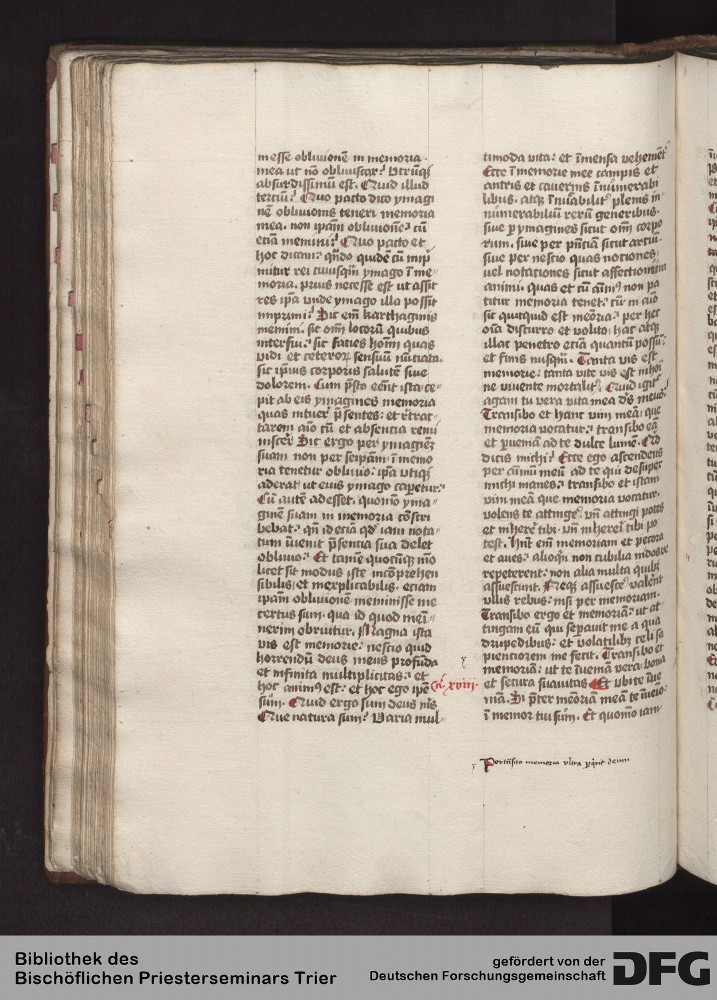 messe obliuionē in memoria
mea ut nō obliuiscar? Vtrūq₃
absurdissimū est. Quid illud
terciū? Quo pacto dico ymagi
nē obliuionis teneri memoria
mea. non ipam̄ obliuionē? cū
eciā memini? Quo pacto et
hoc dicam? qn̄do quidē cū imp͛
mitur rei cuiusq̄₃ ymago ī me=
moria. prius necesse est ut assit
res ip̄a vnde ymago illa possit
imprimi? Sic em̄ karthaginis
memini. sic om̄i locorū quibus
interfui? sic facies hoīm quas
vidi et ceteroꝝ sensuū nūciata.
sic ip̄ius corporis salutē siue
dolorem. Cum p̄sto eēnt ista ce=
pit ab eis ymagines memoria
quas intuer͛ p̄sentes: et r̄trac=
tarem aīo cū et absentia remi
niscer͛ Sic ergo per ymaginē
suam non per seipam̄ ī memo
ria tenetur obliuio: ip̄a vtiq₃
aderat ut eius ymago caperetur?
Cū autē adesset. quomō yma=
ginē suam in memoria cōscri
bebat? qn̄ id eciā qd̓ iam nota=
tum īuenit p̄sentia sua delet
obliuio? Et tamē quocūq₃ mō
licet sit modus iste incōprehen
sibilis et inexplicabilis. eciam
ip̄am obliuionē meminisse me
certus sum. qua id quod mei=
nerim obruitur. Magna ista
vis est memorie: nescio quid
horrendū deus meus profūda
et infinita multiplicitas: et
hoc animꝰ est: et hoc ego ip̄e
sum. Quid ergo sum deus m̄s
Que natura sum? Varia mul=
timoda vita: et īmensa vehemēt͛
Ecce ī memorie mee campis et
antris et cauernis īnūmerabi
libus. atq₃ īnūabilit͛ plenis in
nūmerabiliū rerū generibus.
siue p ymagines sicut om̄ corpo
rum. siue per pn̄ciā sicut arciū.
siue per nescio quas nociones
uel notationes sicut affectionum
animi. quas et cū animꝰ non pa
titur memoria tenet. cū ī aīo
sit quitquid est meōria: per hec
oīa discurro et volito. hac atq₃
illac penetro eciā quantū possū:
et finis nusq̄. Tanta vis est
memorie: tanta vite vis est ī hoī
ne viuente mortalit͛. Quid igit͛
agam tu vera vita mea ds̄ meus?
Transibo et hanc vim meā: que
memoria vocatur? transibo eā
et pueniā ad te dulce lumē. Qd̓
dicis michi? Ecce ego ascendens
per animū meū ad te qui desuper
michi manes? transibo et istam
vim meā que memoria vocatur.
volens te attinge͛ vn̄ attingi potes
et inhere͛ tibi. vn̄ inhereri tibi po
test. Hn̄t em̄ memoriam et pecora
et aues? alioqn̄ non cubilia nidosue
repeterent? non alia multa quibꝫ
assuescunt. Neq₃ assuesce͛ valent
vllis rebus. nisi per memoriam.
Transibo ergo et memoriā? ut at
tingam eū qui sepauit me a qua
drupedibus: et volatilibꝫ celi sa
pientiorem me fecit. Transibo et
memoriā: ut te īueniā vera bona
ca. xviii.
et secura suauitas Et vbi te īue
niā. Si p̄ter meōriam meā te īueio
ī memor tui sum. Et quomō iam
y Pertn̄sita memoria vltra
Bibliothek des
Bischöflichen Priesterseminars Trier
gefördert von der
Deutschen Forschungsgemeinschaft
DFG